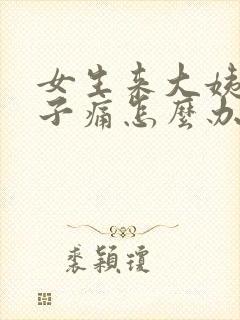 女生来大姨
子痛怎麼办
裘穎瓊